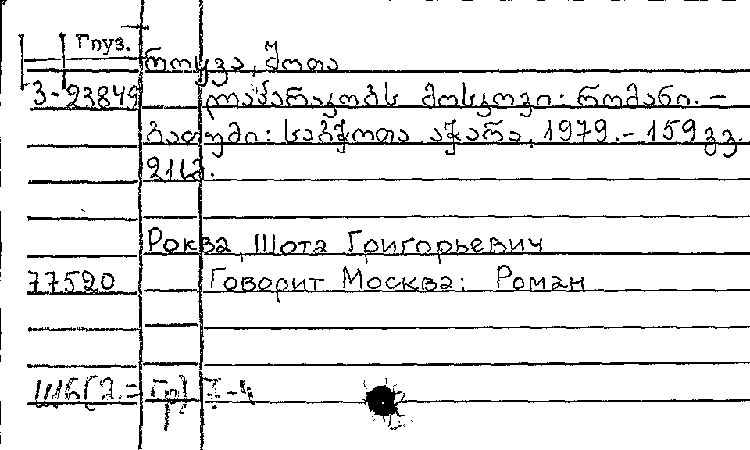 Груз.
როყვა, შოთა
3-23849 ლაპარაკობს მოსკოვი: რომანი. –
ბათუმი: საბჭოთა აჭარა, 1979. – 159 გვ.
21 სმ.
Роква, Шота Григорьевич
77520 Говорит Москва: Роман
Ш6(2=Гр)7-4